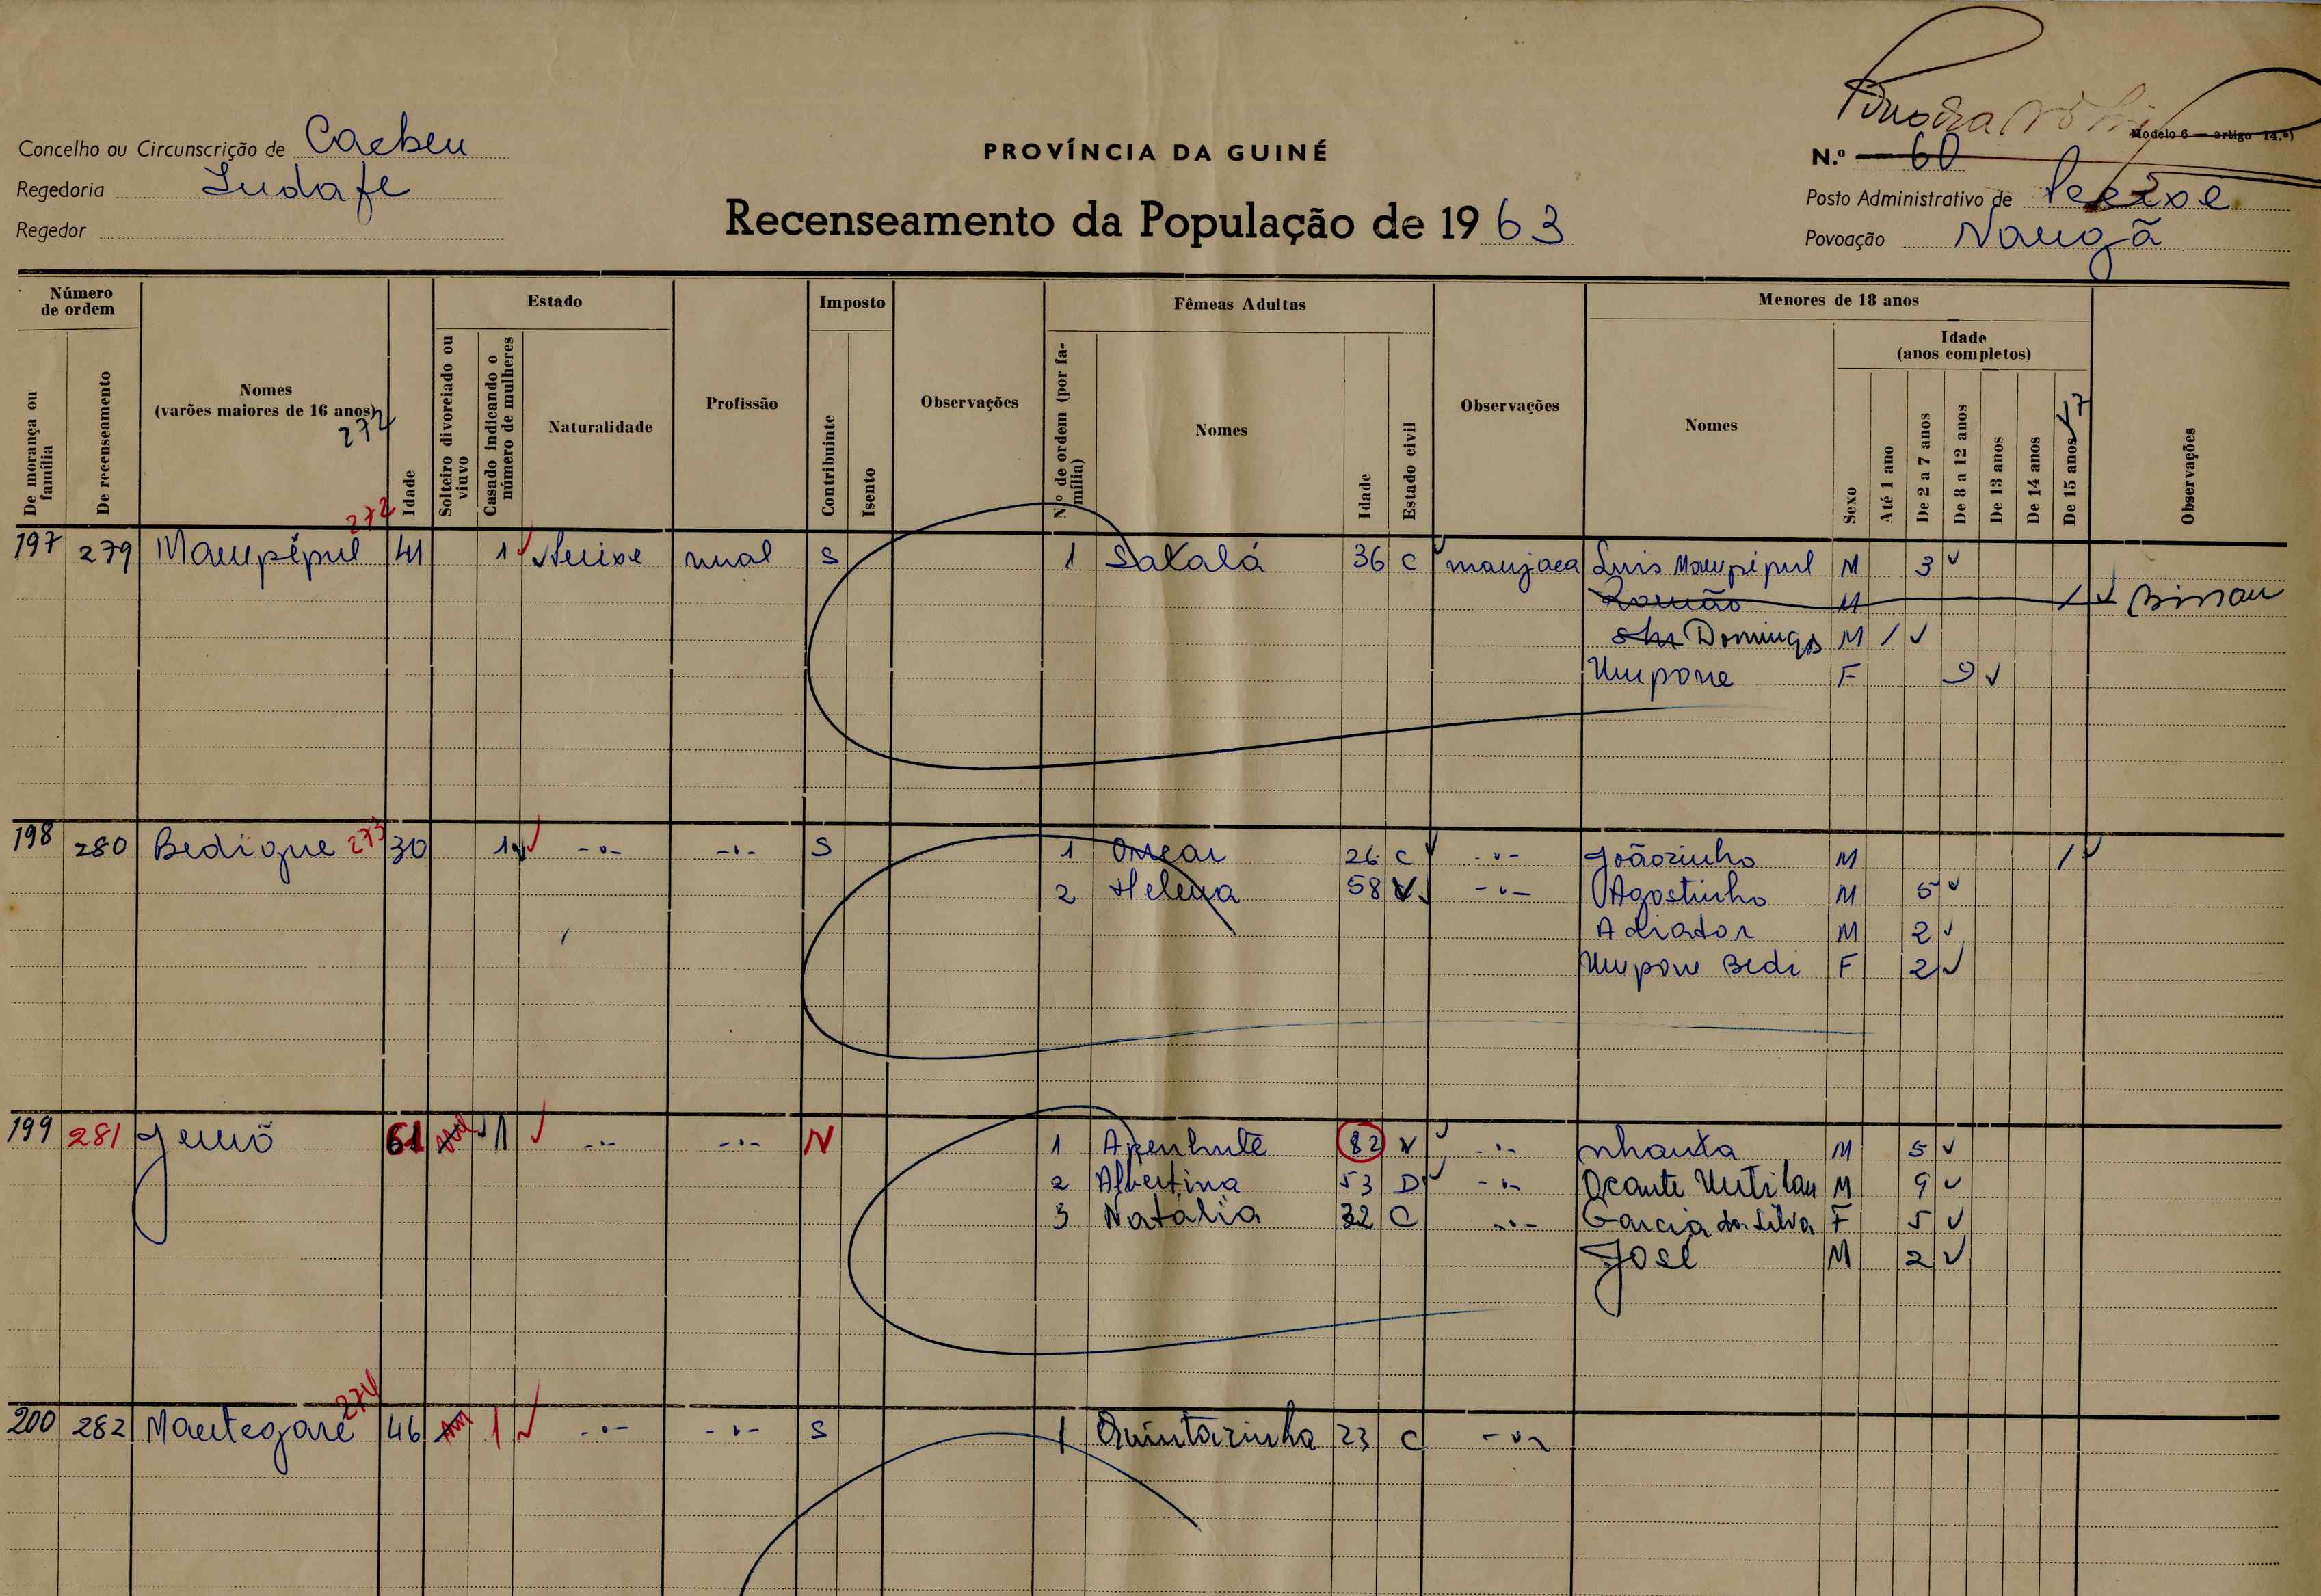 Modelo 6 — artigo 14.º)
Concelho ou Circunscrição de Cacheu
PROVÍNCIA DA GUINÉ
N.º 60
Regedoria
Recenseamento da População de 1963
Posto Administrativo de
Regedor
Povoação Naugã
Número de ordem
Estado
Imposto
Fêmeas Adultas
Menores de 18 anos
Idade (anos completos)
De morança ou família
De recenseamento
Nomes (varões maiores de 16 anos)
274
Idade
Solteiro divorciado ou viuvo
Casado indicando o número de mulheres
Naturalidade
Profissão
Contribuinte
Isento
Observações
Nº de ordem (por família)
Nomes
Idade
Estado civil
Observações
Nomes
Sexo
Até 1 ano
De 2 a 7 anos
De 8 a 12 anos
De 13 anos
De 14 anos
De 15 anos 17
Observações
197 279 Maupépul 272 41 1 rural S 1 Sakalá 36 C manjaca Luis Maupépul M 3
Romão M / Bissau
Domingos M /
Umpone F 9
198 280 Bedique 273 30 1 -"- -"- S 1 26 C -"- Joãozinho M /
2 Helena 58 V -"- Agostinho M 5
Adiador M 2
Umpone Bedi F 2
199 281 61 1 -"- -"- N 1 Apenhute 82 V -"- Nhanka M 5
2 Albertina 53 D -"- Ocante M 9
3 Natália 32 C -"- Garcia da Silva F 5
José M 2
200 282 Mantegare 274 46 1 -"- -"- S 1 Quintazinha 23 C -"-